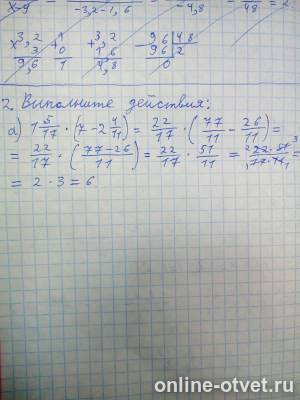 x-9
-3,2-1,6
-4,8
48
= 2
x 3,2
3
9,6
1
0
1
+ 3,2
1,6
4,8
- 96 | 48
96 | 2
0
2. Выполните действия:
а) 1 5/17 · (7 - 2 4/11) = 22/17 · (77/11 - 26/11) =
= 22/17 · (77-26/11) = 22/17 · 51/11 = 22·51/17·11 =
= 2 · 3 = 6
online-otvet.ru